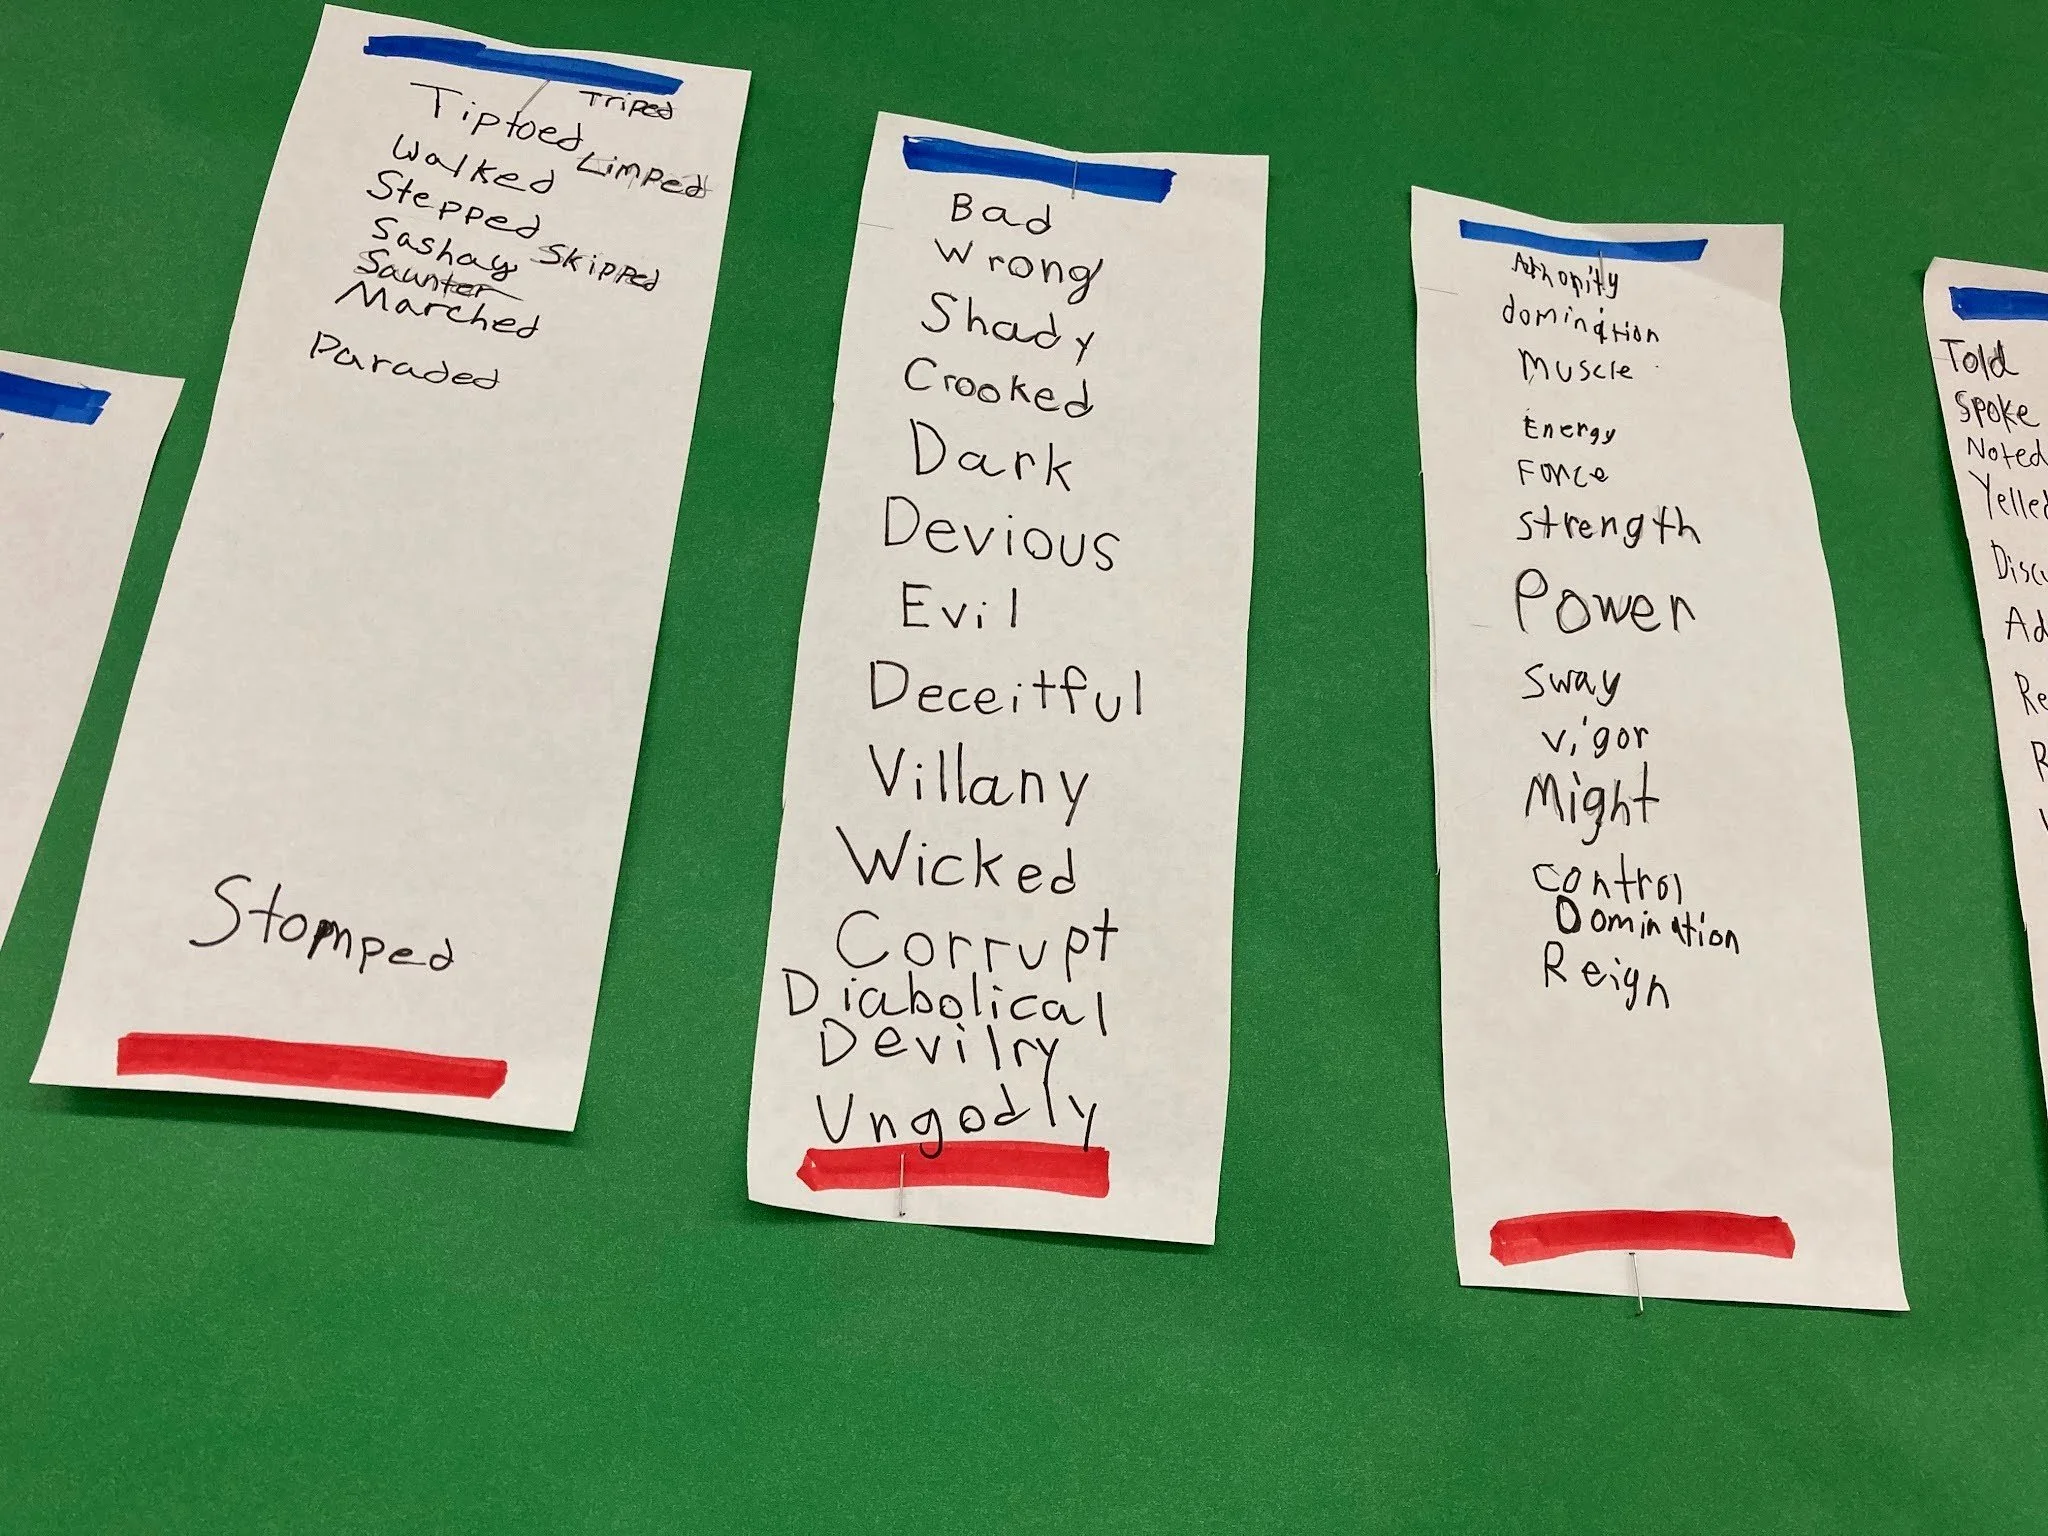 Triped
Tiptoed
Limped
Walked
Stepped
Skipped
Sashay
Saunter
Marched
Paraded
Stomped
Bad
Wrong
Shady
Crooked
Dark
Devious
Evil
Deceitful
Villany
Wicked
Corrupt
Diabolical
Devilry
Ungodly
domination
Muscle
Energy
Force
Strength
Power
Sway
vigor
Might
control
Domination
Reign
Told
Spoke
Noted